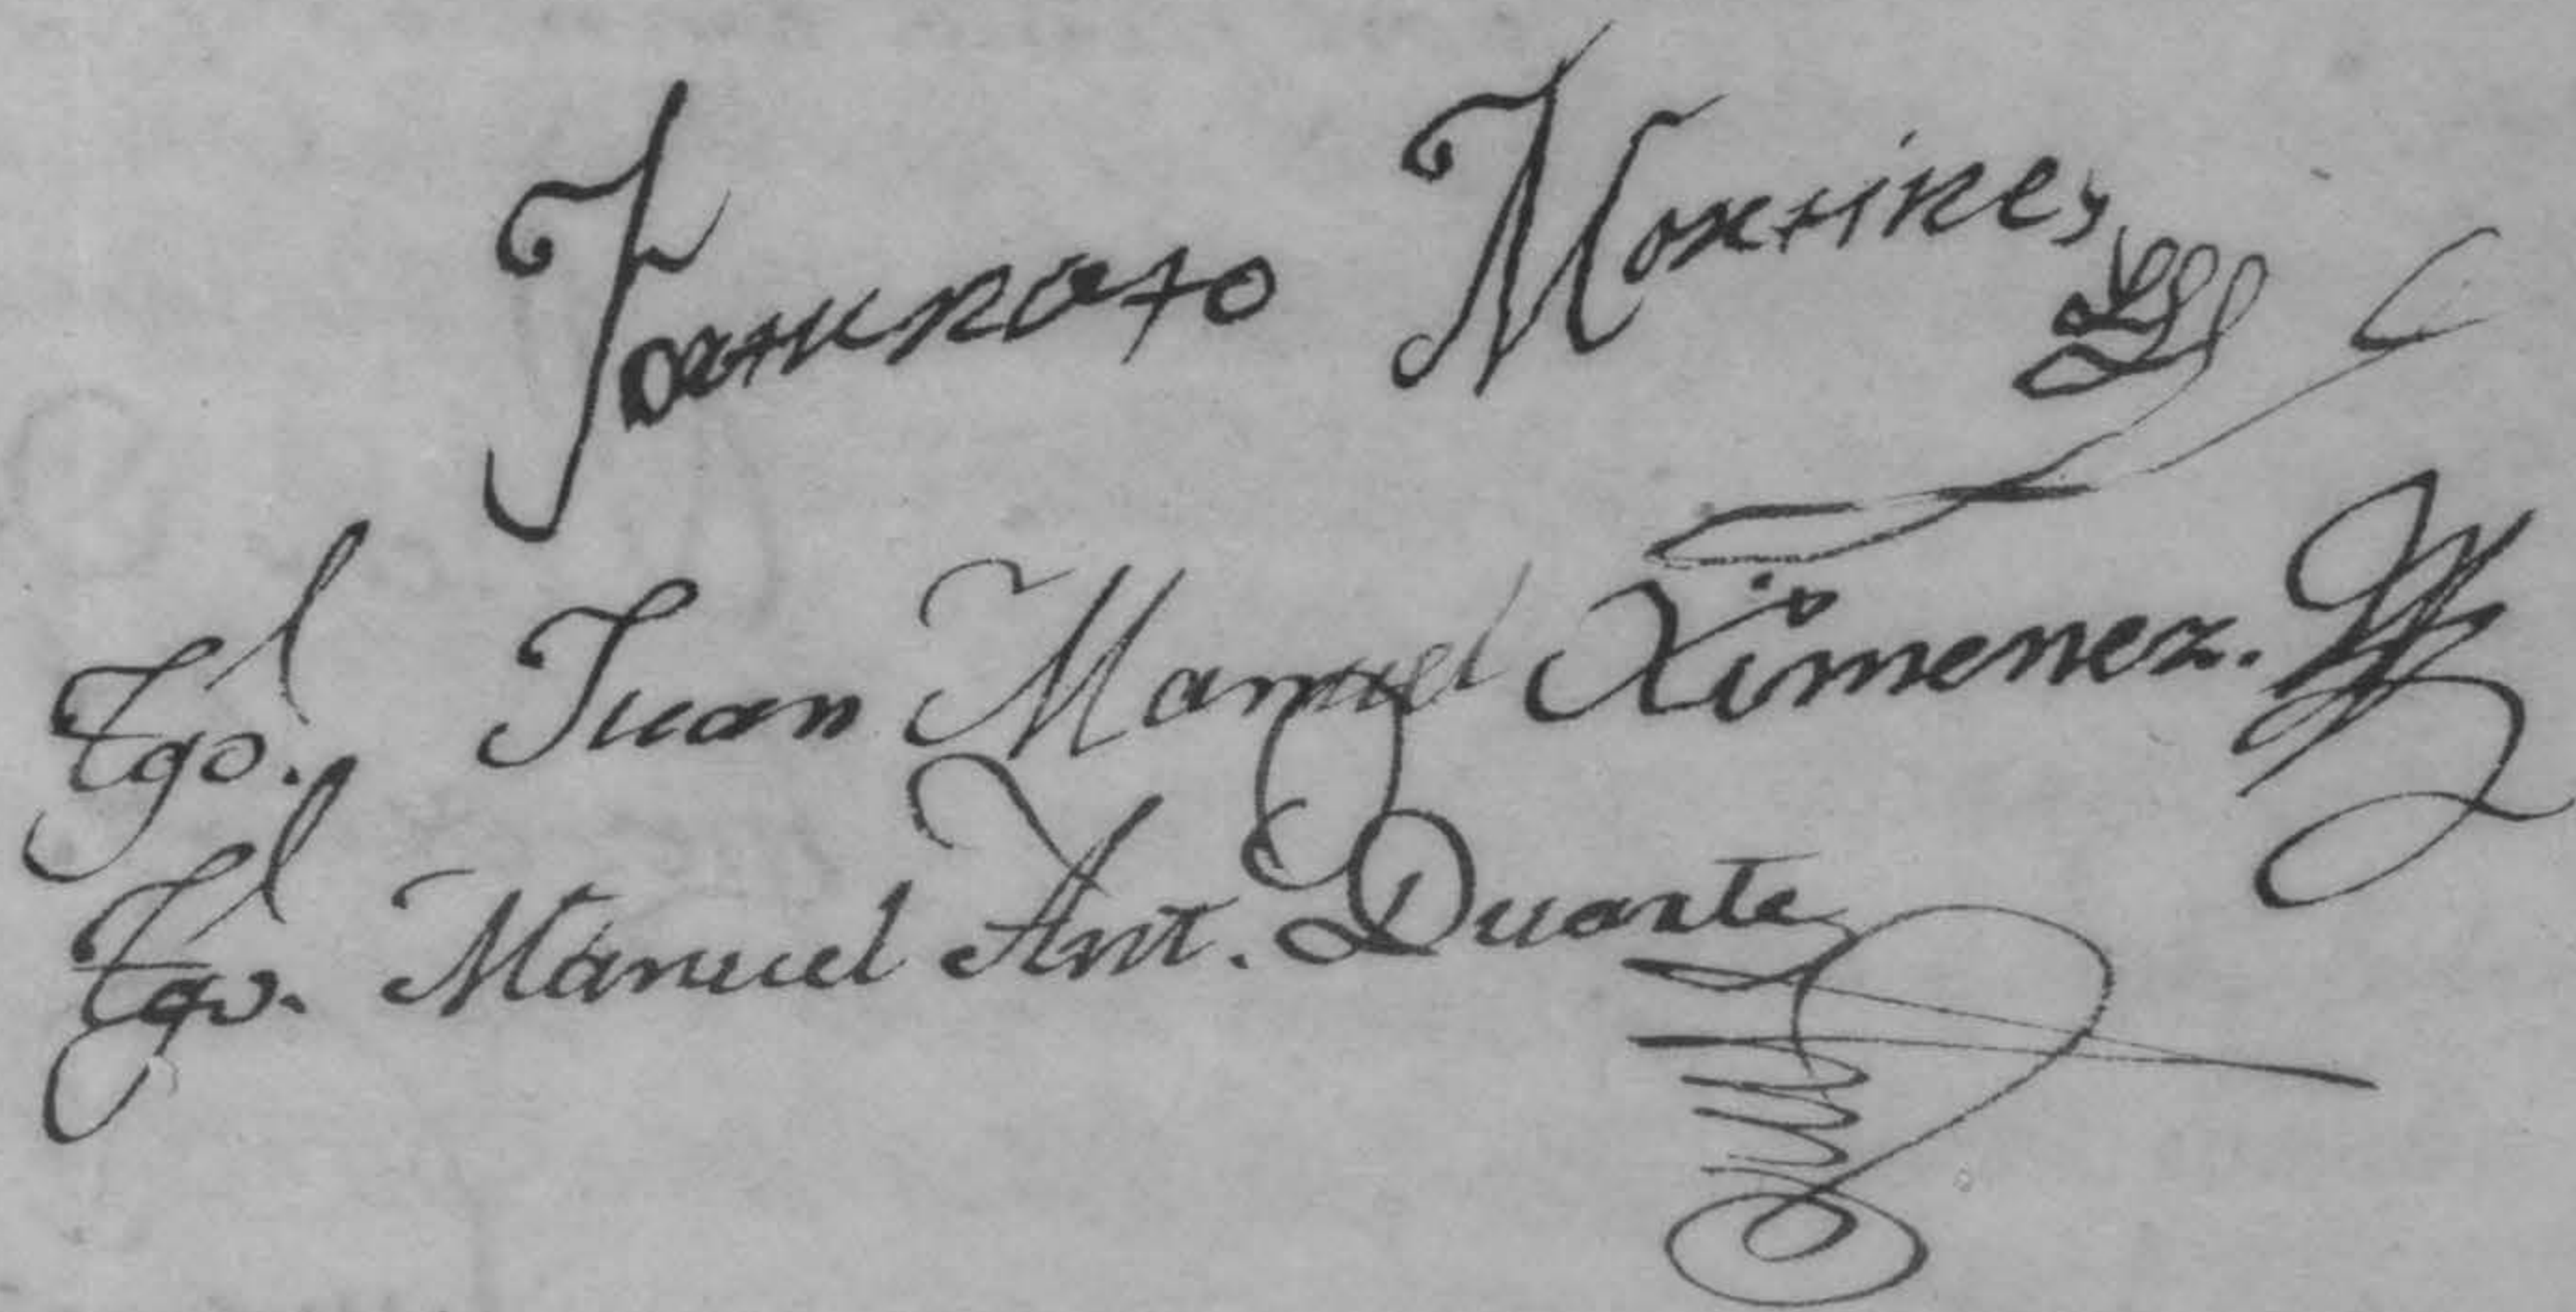 Fortunato Martines
Tgo. Juan Manuel Ximenez.
Tgo. Manuel Ant. Duarte